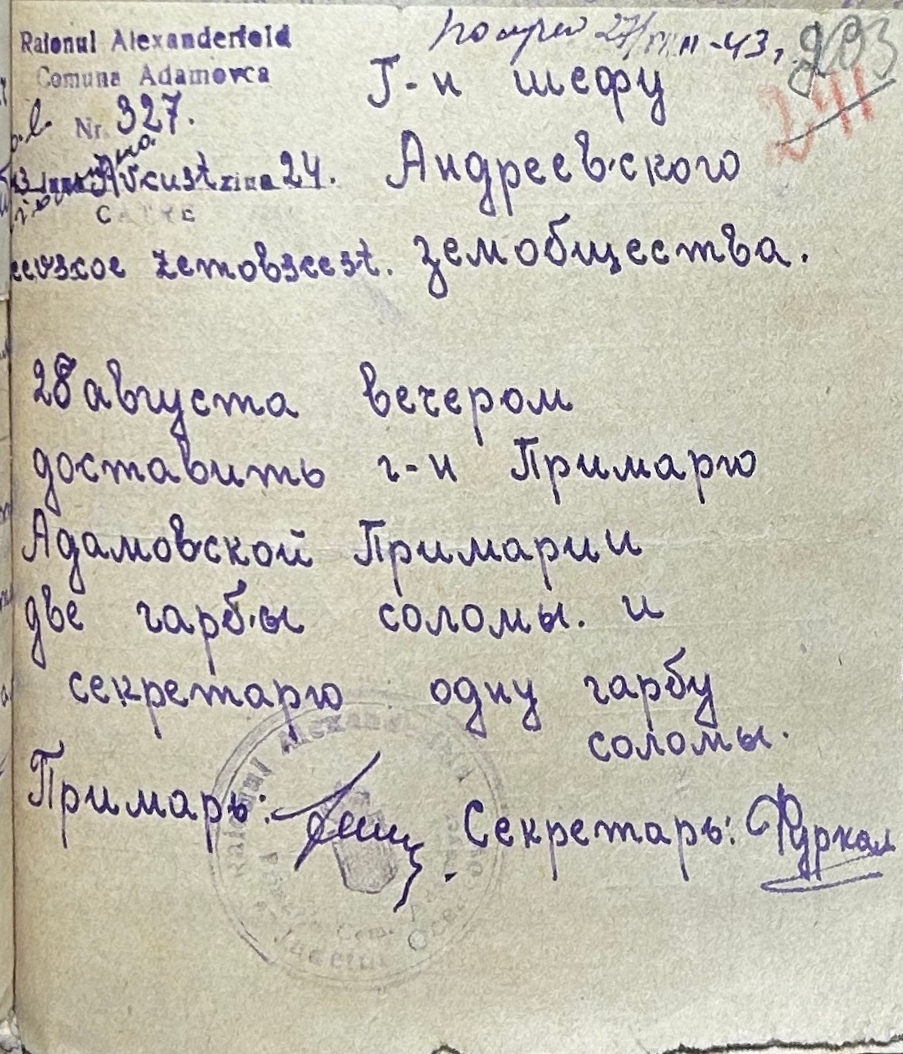 Raionul Alexanderfeld
Comuna Adamovca
Nr. 327.
Avcust ziua 24.
CATRE
получен 27/VIII-43 г.
203
241
Г-н шефу
Андреевского
земобщества.
28 августа вечером
доставить г-н Примарю
Адамовской Примарии
две гарбы соломы. и
секретарю одну гарбу
соломы.
Примарь:
Секретарь: Фуркал
Raionul Alexanderfeld